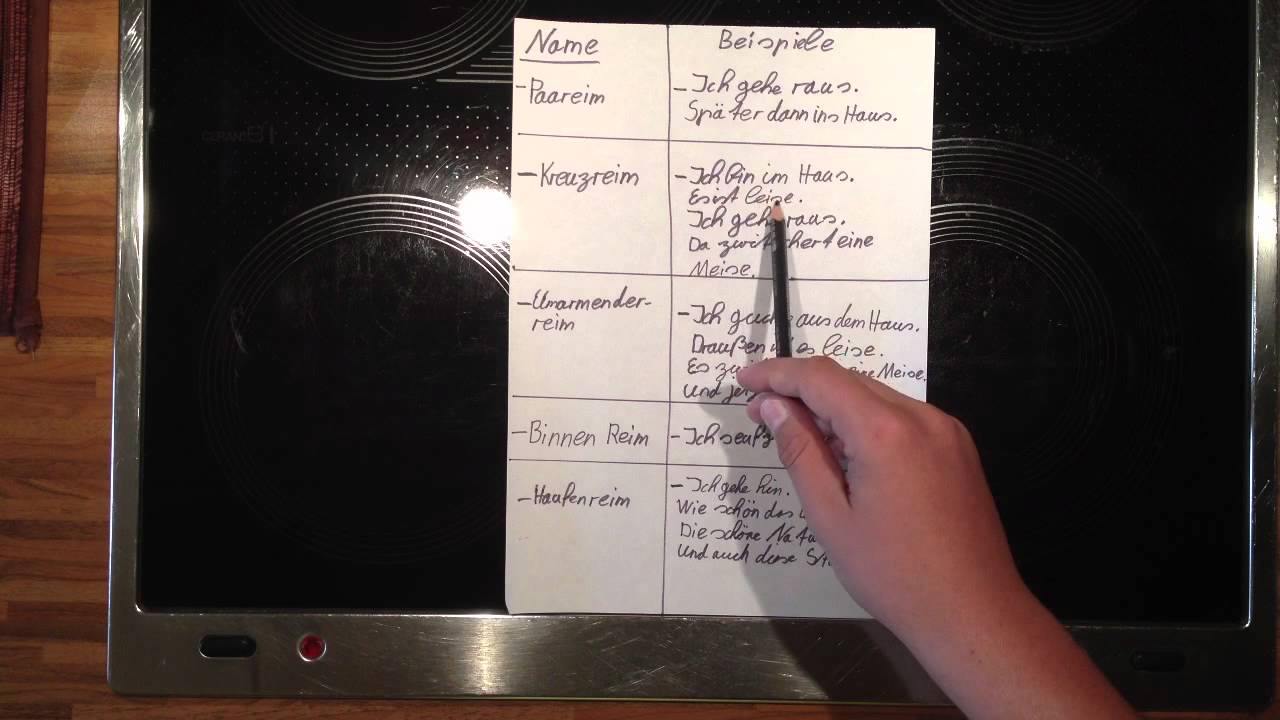 Name
Beispiele
- Paareim
- Ich gehe raus.
Später dann ins Haus.
- Kreuzreim
- Ich bin im Haus.
Es ist leise.
Ich gehe raus.
Da zwitschert eine
Meise.
- Umarmender-
reim
- Ich gucke aus dem Haus.
Draußen ist es leise.
Es eine Meise.
Und
- Binnen Reim
- Ich
- Haufenreim
- Ich gehe hin.
Wie schön das
Die schöne
Und auch diese